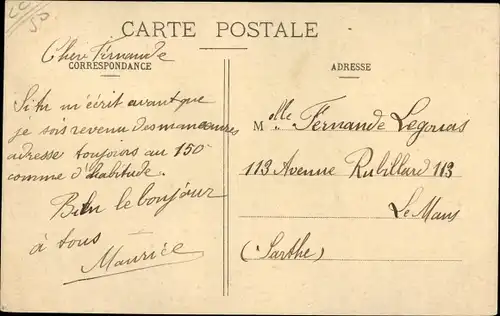 CARTE POSTALE
Cher Fernande
CORRESPONDANCE
Si tu m'écrit avant que
je sois revenu des manœuvres
adresse toujoirs au 150
comme d'habitude.
Bien le bonjour
à tous
Maurice
ADRESSE
Melle Fernande Legouas
113 Avenue Rubillard 113
Le Mans
(Sarthe)